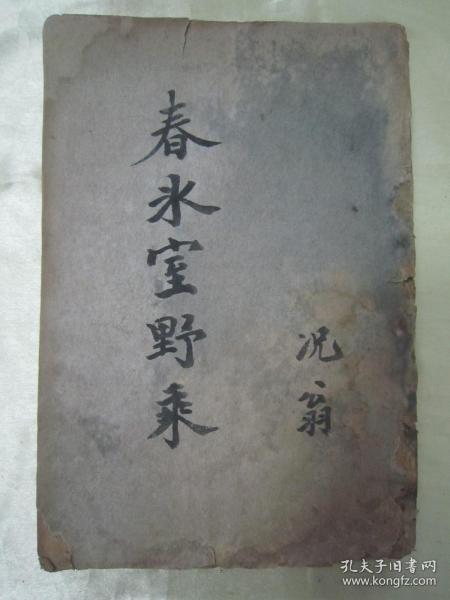 春氷室野乘
况翁
孔夫子旧书网
www.kongfz.com